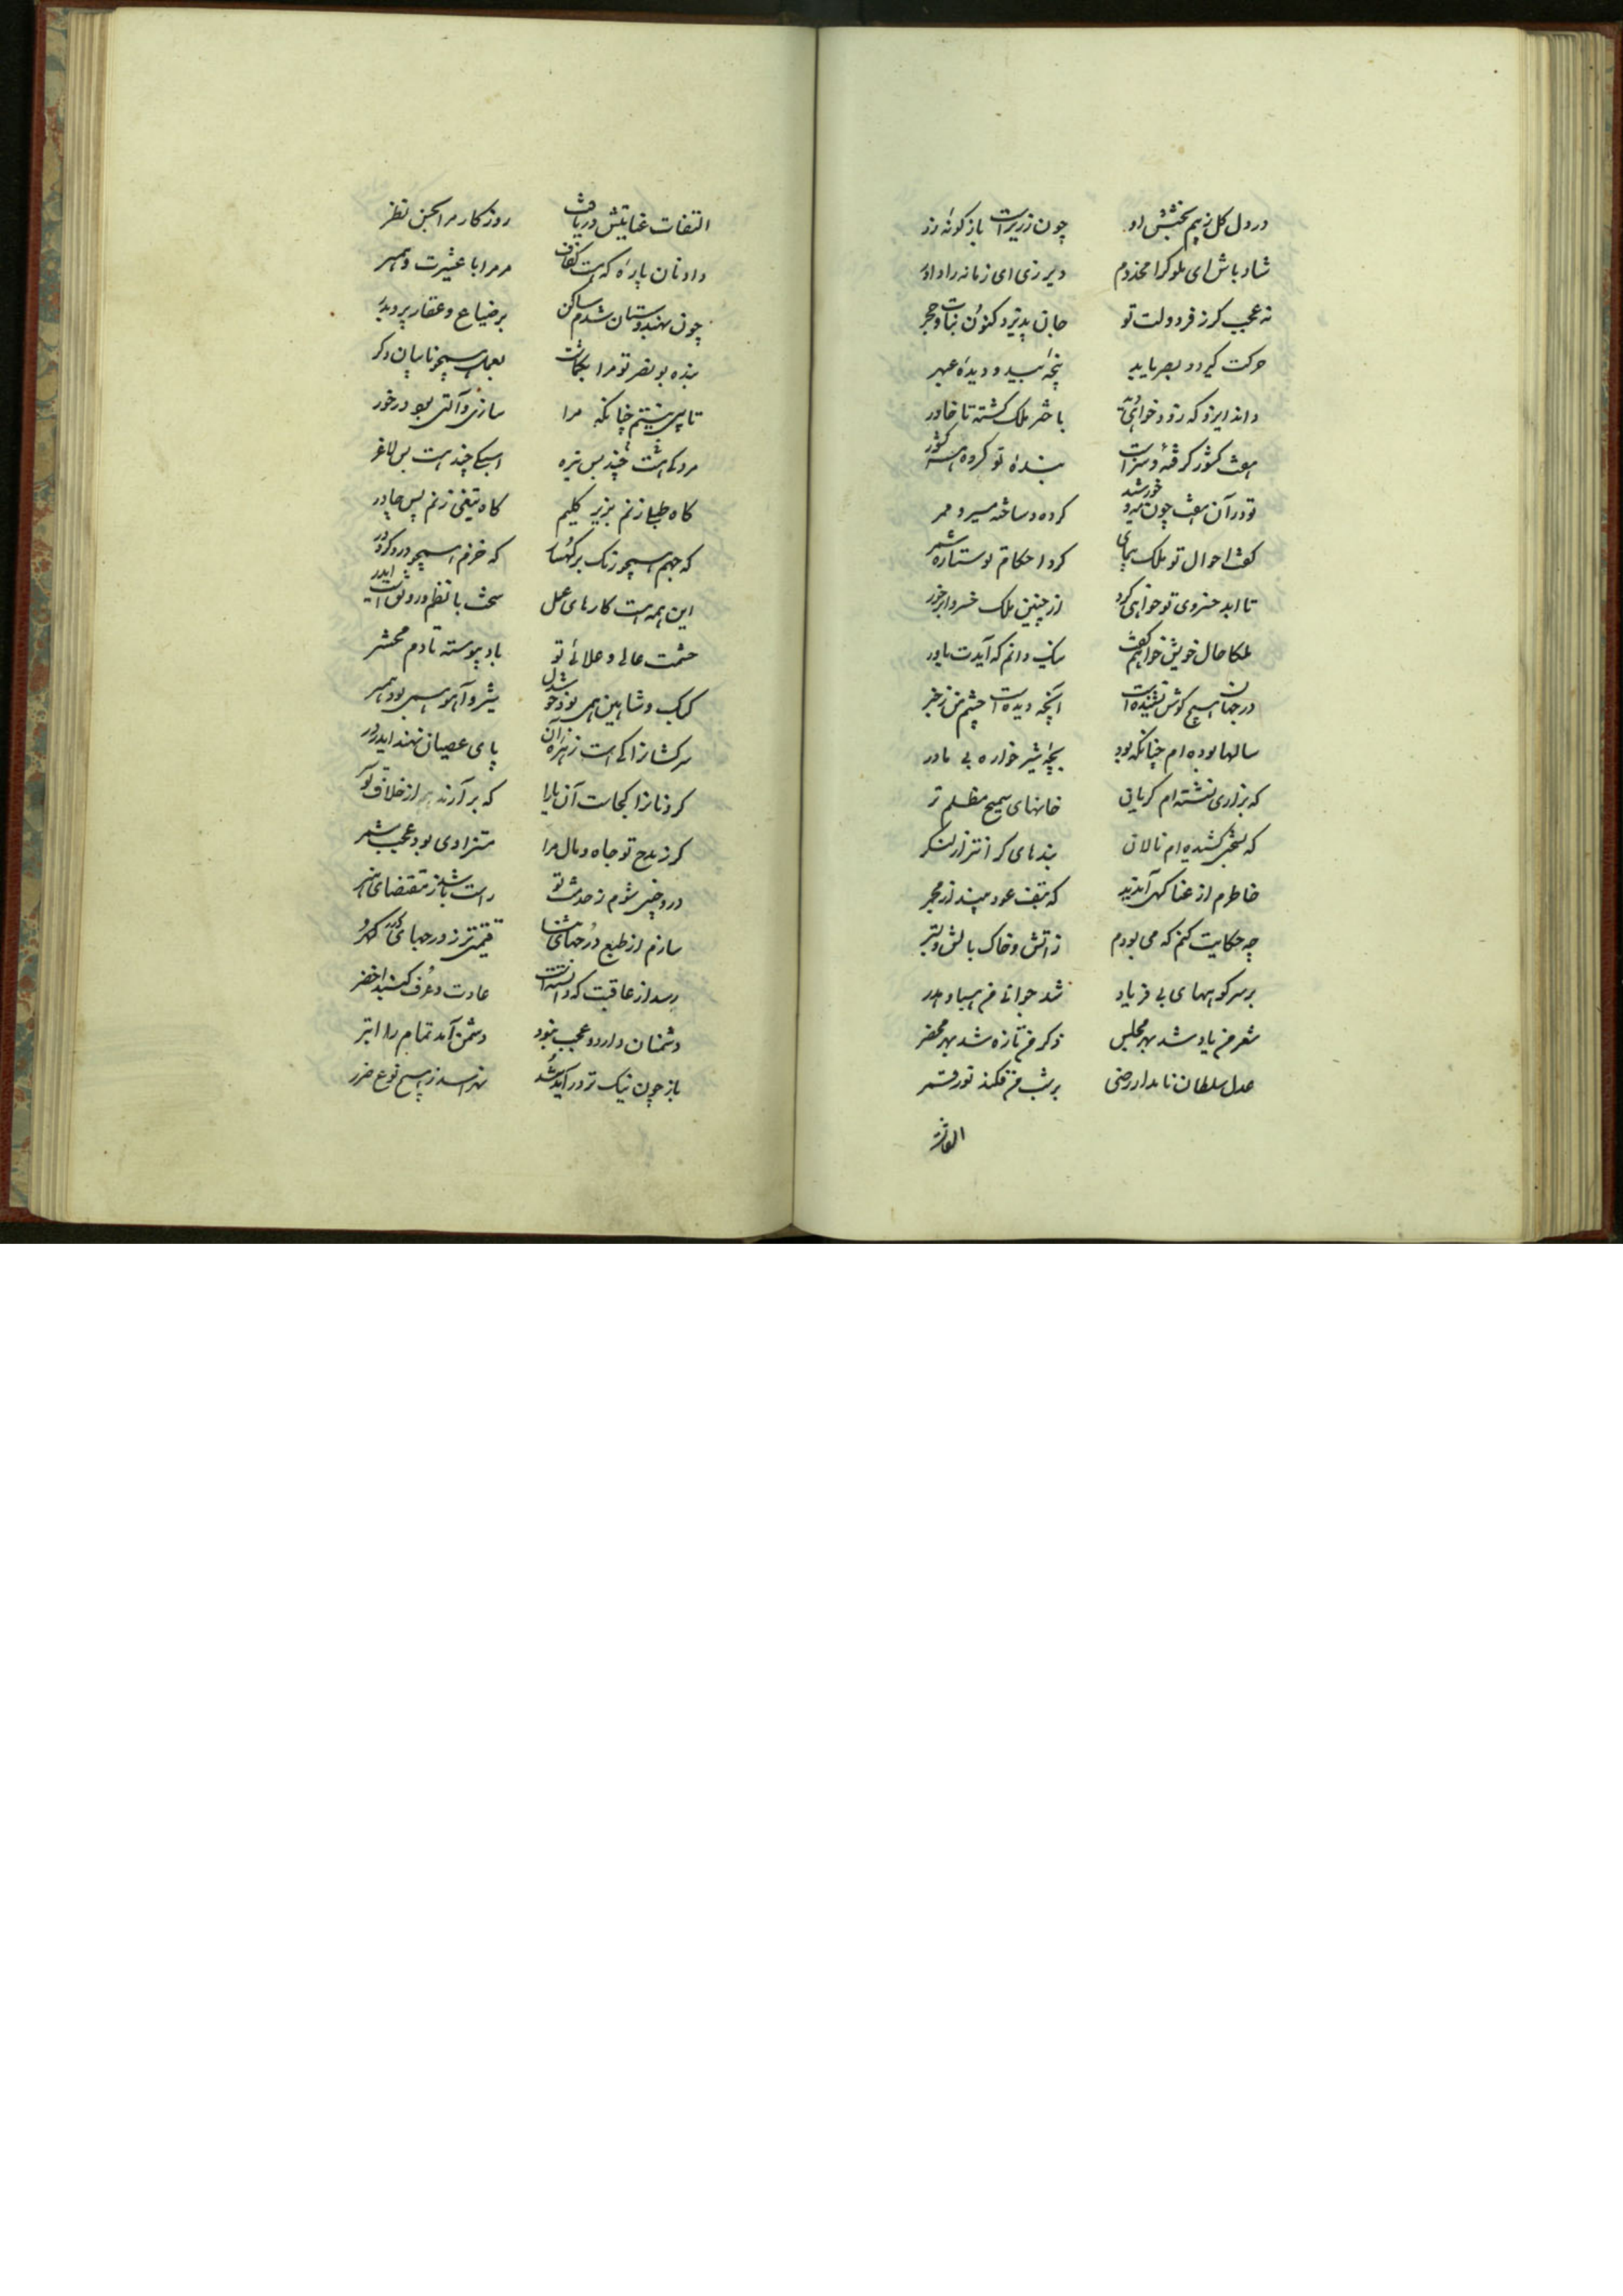 در دل کل ز بیم بخشش او چون زریر است باز کونه زر
شاد باش ای ملوک را مخدوم دیر زی ای زمانه را داور
نه عجب کز فر دولت تو جان پذیرد کنون نبات و حجر
حرکت گیرد و بصر یابد پنجه بید و دیده عبهر
داند ایزد که زود خواهی باختر ملک گشته تا خاور
هفت کشور گرفته و سزاست بنده تو کرده هر کشور
تو در آن هفت چون خورشید کرده و ساخته مسیر و ممر
گفت احوال تو ملک پیمای کرد احکام تو ستاره شمر
تا ابد خسروی تو خواهی کرد از چنین ملک خسروا برخور
ملکا حال خویش خواهم گفت نیک دانم که آیدت باور
در جهان هیچ گوش نشنیده است آنچه دیده است چشم من ز خبر
سالها بوده ام چنانکه بود بچه شیر خواره بی مادر
که بزاری نشسته ام گریان خانهای سمج مظلم تر
که بسختی کشیده ام نالان بندهای گران تر از لنگر
خاطرم از عنا کهی آبدید که بتف عود بیند از مجمر
چه حکایت کنم که می بودم ز آتش و خاک بالش و بستر
بر سر کوههای بی فریاد شد جوانی من هبا و هدر
شعر من یاد شد بهر مجلس ذکر من تازه شد بهر محضر
عدل سلطان نامدار رضی بر شب من فکند نور قمر
التفات
التفات عنایتش دریافت روزگار مرا بحسن نظر
داد نان پاره که هست کفاف مر مرا با عشیرت و همسر
چون بهندوستان شدم ساکن بر ضیاع و عقار پیر و پدر
بنده بونصر تو مرا بگماشت بعمل همچو نایبان دگر
تا پس بیستم چنانکه مرا سازی و آلتی بود درخور
مردکی هشت چند بس تیره اسبکی چند هست بس لاغر
گاه طبلی زنم بزیر گلیم گاه تیغی زنم پس چادر
که جهم همچو رنگ بر کهسار که خزم همچو در در و کردر
این همه هست کارهای عمل سخت با نظم و رونق است ایدر
حشمت عالی و علائی تو باد پیوسته تا دم محشر
کبک و شاهین همی بود خوشدل شیر و آهو همی بود همبر
سرکشان را کی است زهره آن پای عصیان نهند ایدر در
گردنان را کجاست آن یارا که بر آرند سر از خلاف تو
کز مدح تو جاه و مال مرا متزادی بود عجب مشمر
در و چنین شوم ز خدمت تو راست باشد ز مقتضای هنر
سازم از طبع درجهای ثنا قیمتی تر ز درجهای گهر
رسد از عاقبت که دانسته است عادت و عرف گنبد اخضر
دشمنان دارد و عجب نبود دشمن آمد تمام را ابتر
باز چون نیک تر در اندیشد نهراسد ز هیچ نوع ضرر